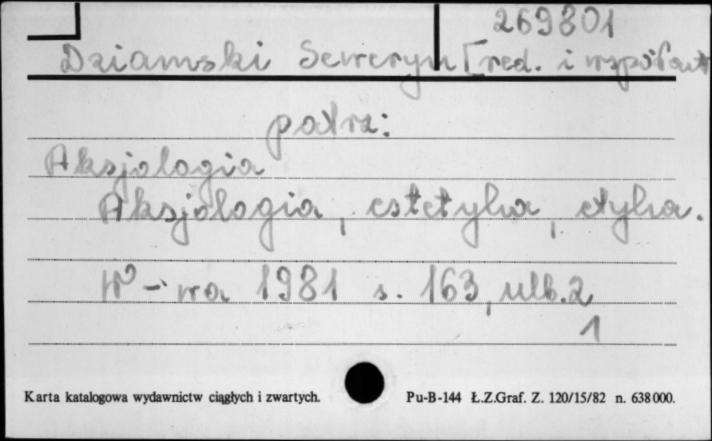 269801
Dziamski Seweryn [red. i współaut
patrz:
Aksjologia
Aksjologia, estetyka, etyka.
W-wa 1981 s. 163, nlb. 2
1
Karta katalogowa wydawnictw ciągłych i zwartych. Pu-B-144 Ł.Z.Graf. Z. 120/15/82 n. 638000.